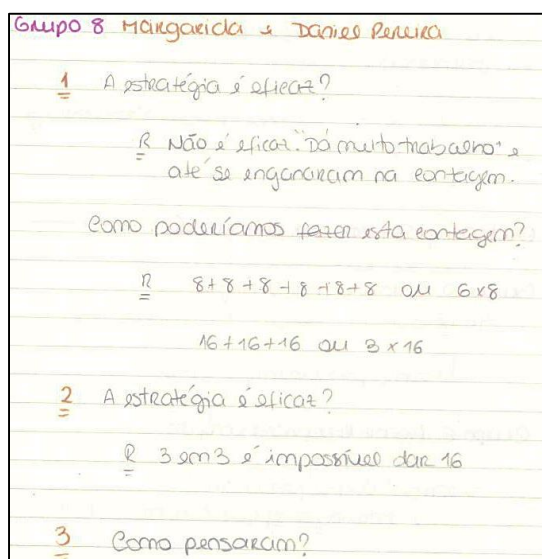 Grupo 8 Margarida e Daniel Pereira
1 A estratégia é eficaz?
R Não é eficaz. "Dá muito trabalho" e
até se enganaram na contagem.
Como poderíamos fazer esta contagem?
R 8+8+8+8+8+8 ou 6x8
16+16+16 ou 3x16
2 A estratégia é eficaz?
R 3 em 3 é impossível dar 16
3 Como pensaram?